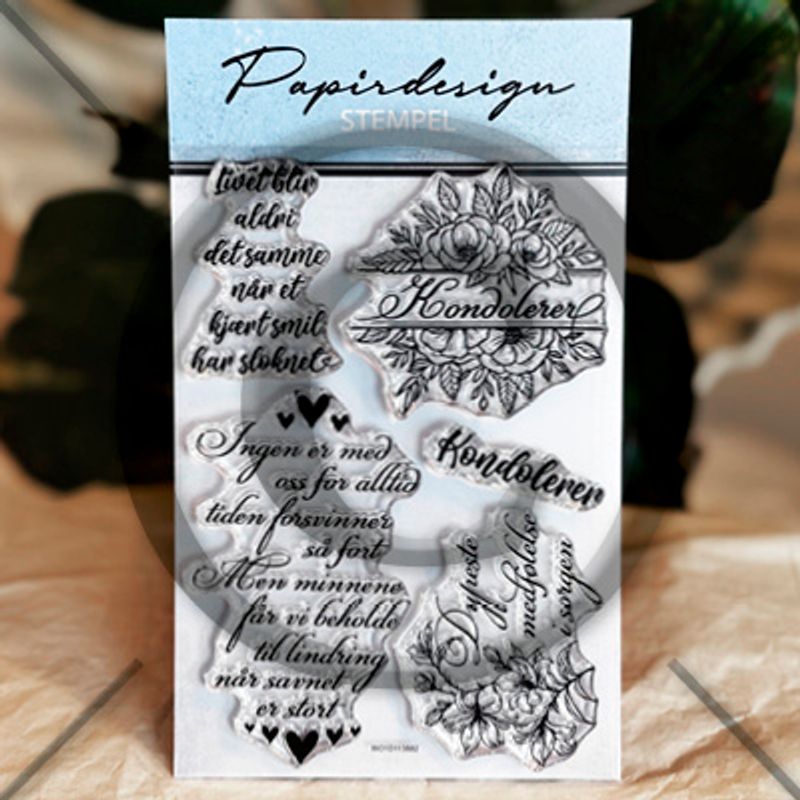 Papirdesign
STEMPEL
Livet blir
aldri
det samme
når et
kjært smil
har sloknet
Kondolerer
Ingen er med
oss for alltid
tiden forsvinner
så fort
Men minnene
får vi beholde
til lindring
når savnet
er stort
Kondolerer
Dypeste
medfølelse
i sorgen